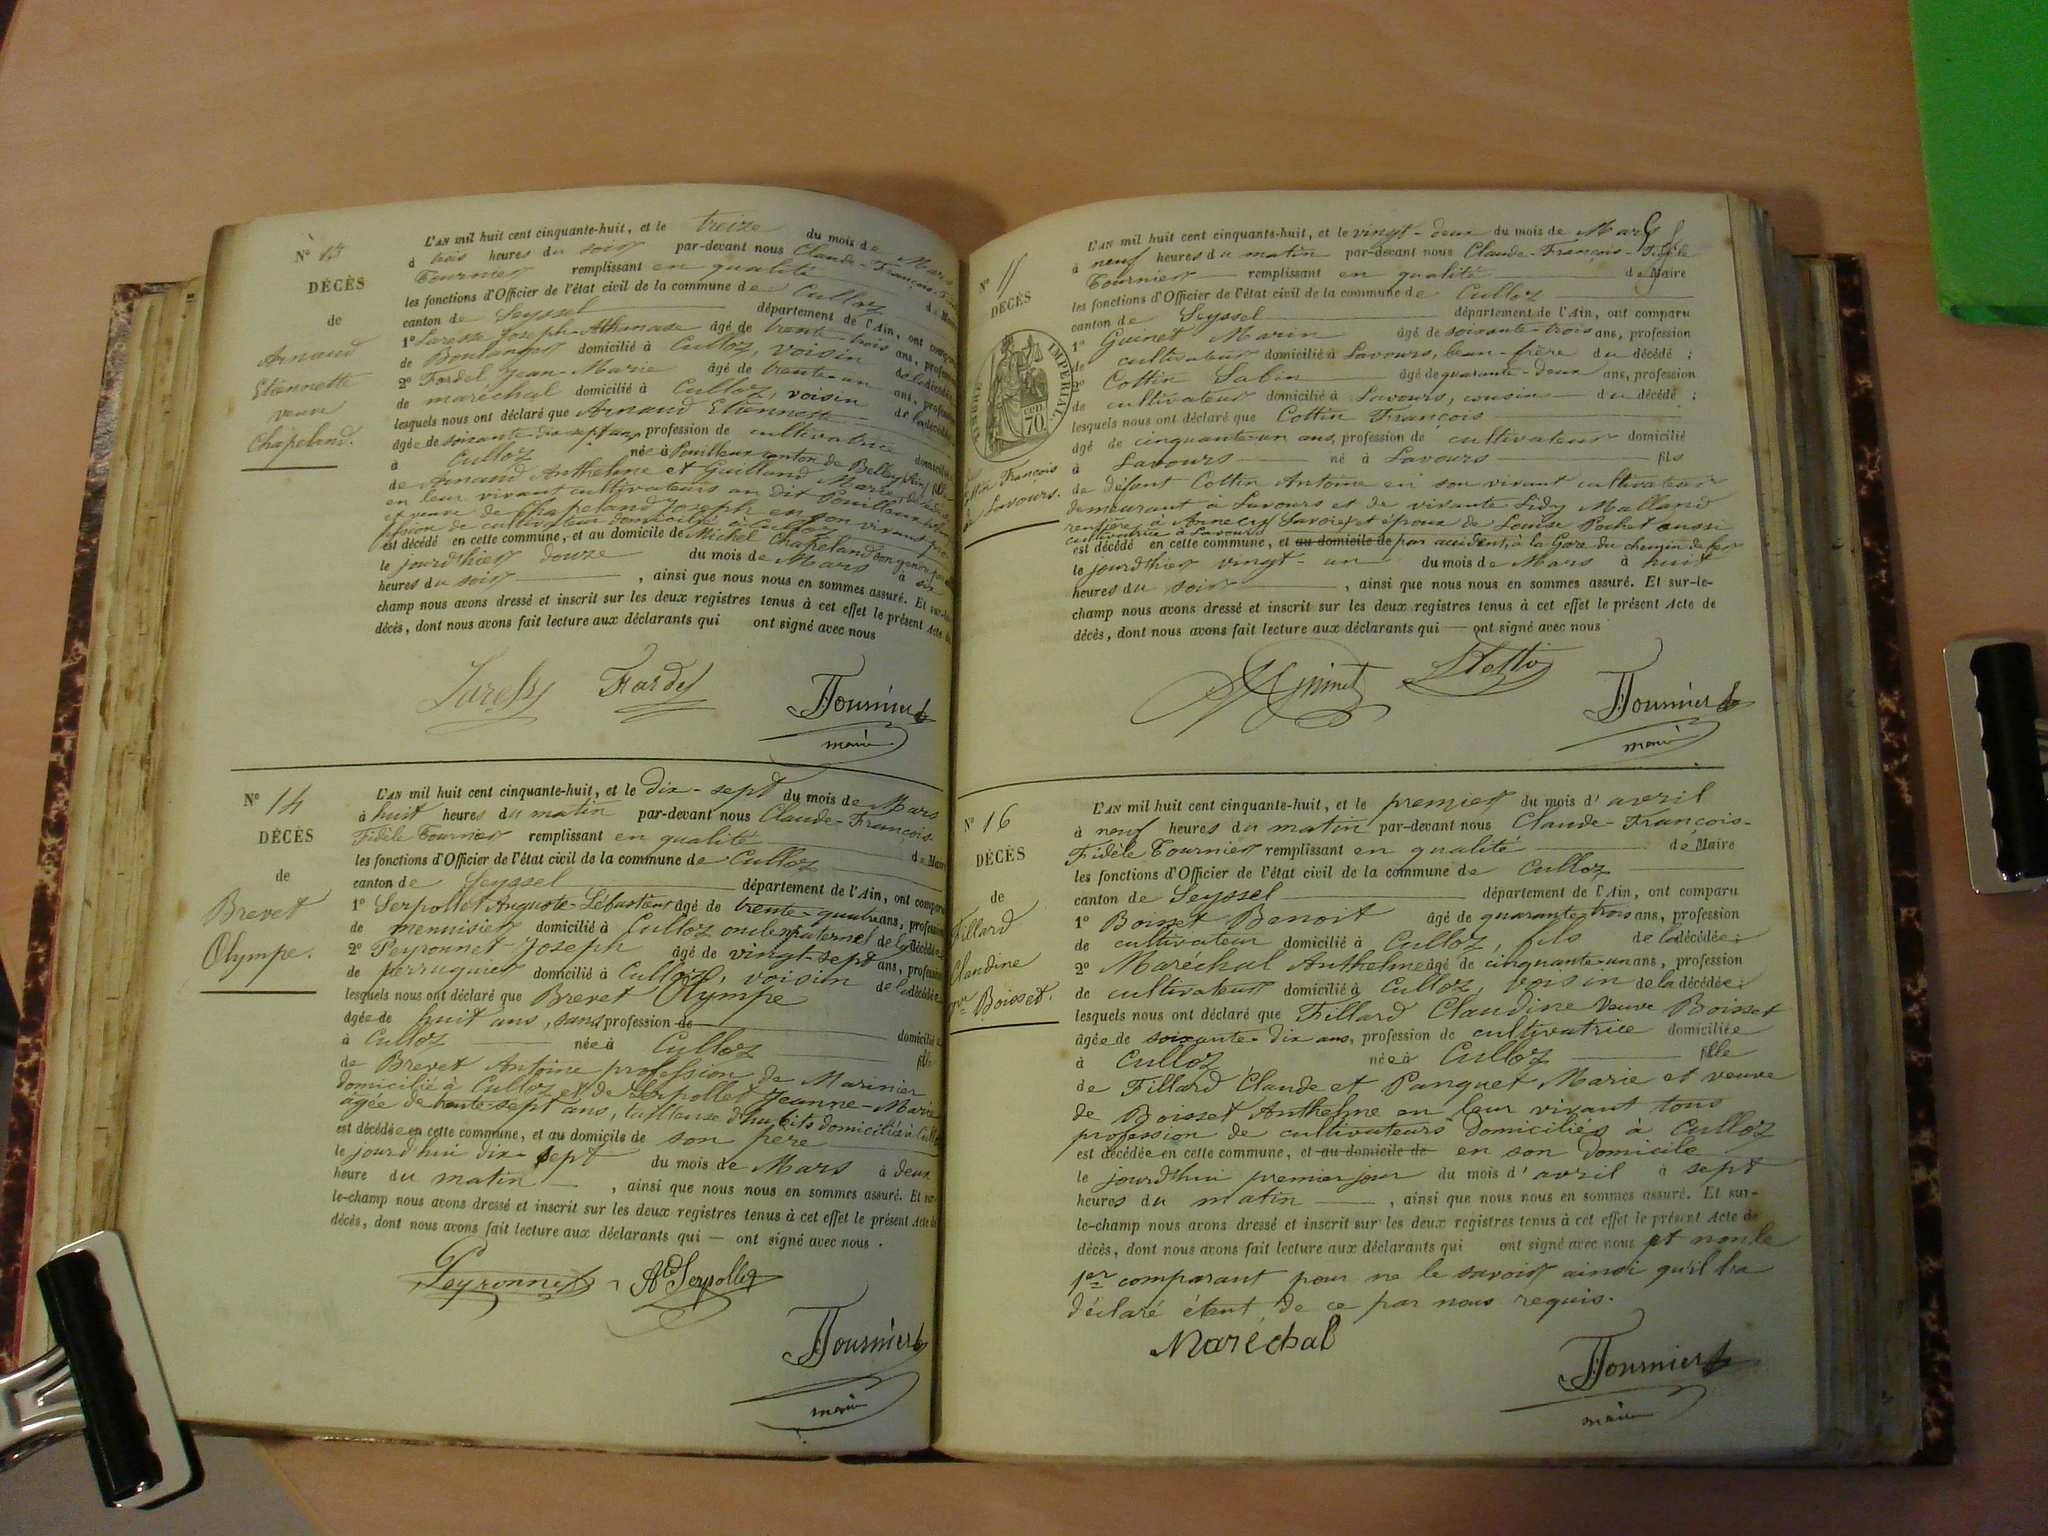 N° 13
DÉCÈS
de
Arnaud
Etiennette
veuve
Chapeland.
L'AN mil huit cent cinquante-huit, et le treize du mois de Mars
à trois heures du soir par-devant nous Claude-François-
Tournier remplissant en qualité de Maire
les fonctions d'Officier de l'état civil de la commune de Culloz
canton de Seyssel département de l'Ain, ont comparu
1° Joseph-Athanase âgé de trente-trois ans, profession
de Boulanger domicilié à Culloz, voisin de la décédée
2° Fardel Jean-Marie âgé de trente-un ans, profession
de maréchal domicilié à Culloz, voisin de la décédée
lesquels nous ont déclaré que Arnaud Etiennette
âgée de soixante-dix sept ans, profession de cultivatrice domiciliée
à Culloz née à Pouilleux canton de Belley (Ain) fille
de Arnaud Anthelme et Guilland Marie décédés
en leur vivant cultivateurs au dit Pouilleux
et veuve de Chapeland Joseph en son vivant pro-
fession de cultivateur domicilié à Culloz
est décédé en cette commune, et au domicile de Michel Chapeland son gendre
le jourd'hier douze du mois de Mars à six
heures du soir , ainsi que nous nous en sommes assuré. Et sur-le-
champ nous avons dressé et inscrit sur les deux registres tenus à cet effet le présent Acte de
décès, dont nous avons fait lecture aux déclarants qui ont signé avec nous
Fardel
Tournier
maire
N° 14
DÉCÈS
de
Brevet
Olympe.
L'AN mil huit cent cinquante-huit, et le dix-sept du mois de Mars
à huit heures du matin par-devant nous Claude-François-
Fidèle Tournier remplissant en qualité de Maire
les fonctions d'Officier de l'état civil de la commune de Culloz
canton de Seyssel département de l'Ain, ont comparu
1° Serpollet Auguste-Sébastien âgé de trente-quatre ans, profession
de menuisier domicilié à Culloz oncle paternel de la décédée
2° Peyronnet Joseph âgé de vingt-sept ans, profession
de perruquier domicilié à Culloz, voisin de la décédée
lesquels nous ont déclaré que Brevet Olympe
âgée de huit ans, sans profession de domiciliée
à Culloz née à Culloz fille
de Brevet Antoine profession de Marinier
domicilié à Culloz et de Serpollet Jeanne-Marie
âgée de trente-sept ans, tailleuse d'habits domiciliée à Culloz
est décédée en cette commune, et au domicile de son père
le jourd'hui dix-sept du mois de Mars à deux
heure du matin , ainsi que nous nous en sommes assuré. Et sur-
le-champ nous avons dressé et inscrit sur les deux registres tenus à cet effet le présent Acte de
décès, dont nous avons fait lecture aux déclarants qui — ont signé avec nous .
Peyronnet
Serpollet
Tournier
maire
N° 15
DÉCÈS
TIMBRE IMPÉRIAL
CEN
70
Cottin François
de Lavours.
L'AN mil huit cent cinquante-huit, et le vingt-deux du mois de Mars
à neuf heures du matin par-devant nous Claude-François-Fidèle
Tournier remplissant en qualité de Maire
les fonctions d'Officier de l'état civil de la commune de Culloz
canton de Seyssel département de l'Ain, ont comparu
1° Guinet Marin âgé de soixante-trois ans, profession
de cultivateur domicilié à Lavours, beau-frère du décédé ;
2° Cottin Sabin âgé de quarante-deux ans, profession
de cultivateur domicilié à Lavours, cousin du décédé ;
lesquels nous ont déclaré que Cottin François
âgé de cinquante-un ans, profession de cultivateur domicilié
à Lavours né à Lavours fils
de défunt Cottin Antoine en son vivant cultivateur
demeurant à Lavours et de vivante Lidy Malland
rentière à Annecy (Savoie) et époux de Louise Pochet aussi
cultivatrice à Lavours
est décédé en cette commune, et au domicile de par accident, à la Gare du chemin de fer
le jourd'hier vingt-un du mois de Mars à huit
heures du soir , ainsi que nous nous en sommes assuré. Et sur-le-
champ nous avons dressé et inscrit sur les deux registres tenus à cet effet le présent Acte de
décès, dont nous avons fait lecture aux déclarants qui — ont signé avec nous
Guinet
Cottin
Tournier
maire
N° 16
DÉCÈS
de
Fillard
Claudine
Vve Boisset.
L'AN mil huit cent cinquante-huit, et le premier du mois d'avril
à neuf heures du matin par-devant nous Claude-François-
Fidèle Tournier remplissant en qualité de Maire
les fonctions d'Officier de l'état civil de la commune de Culloz
canton de Seyssel département de l'Ain, ont comparu
1° Boisset Benoit âgé de quarante-trois ans, profession
de cultivateur domicilié à Culloz, fils de la décédée ;
2° Maréchal Anthelme âgé de cinquante-un ans, profession
de cultivateur domicilié à Culloz, voisin de la décédée ;
lesquels nous ont déclaré que Fillard Claudine veuve Boisset
âgée de soixante-dix ans, profession de cultivatrice domiciliée
à Culloz née à Culloz fille
de Fillard Claude et Panguet Marie et veuve
de Boisset Anthelme en leur vivant tous
profession de cultivateurs domiciliés à Culloz
est décédée en cette commune, et au domicile de en son domicile
le jourd'hui premier jour du mois d'avril à sept
heures du matin , ainsi que nous nous en sommes assuré. Et sur-
le-champ nous avons dressé et inscrit sur les deux registres tenus à cet effet le présent Acte de
décès, dont nous avons fait lecture aux déclarants qui ont signé avec nous et non le
1er comparant pour ne le savoir ainsi qu'il l'a
déclaré étant de ce par nous requis.
Maréchal
Tournier
maire